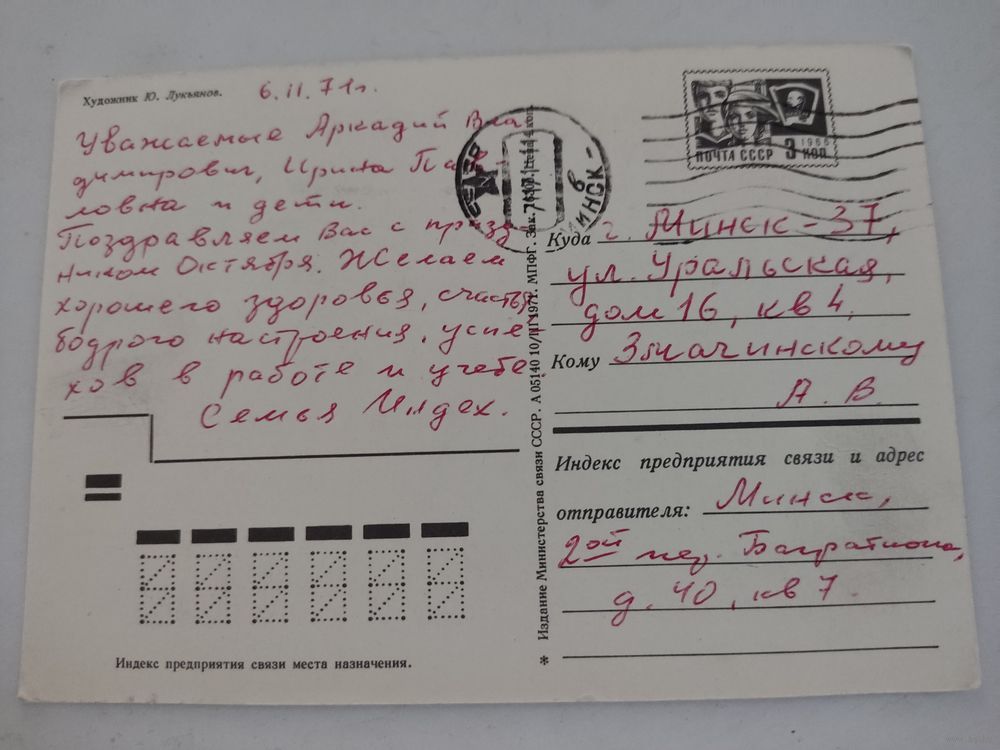 Художник Ю. Лукьянов.
6.11.71г.
Уважаемые Аркадий Вла
димирович, Ирина Пав
ловна и дети.
Поздравляем Вас с празд
ником Октября. Желаем
хорошего здоровья, счастья,
бодрого настроения, успе
хов в работе и учебе.
Семья Илдех.
Индекс предприятия связи места назначения.
* Издание Министерства связи СССР. А 05140 10/III 1971. МПФГ. Зак. Цена 4 коп.
ПОЧТА СССР 3 КОП
1966
МИНСК
Куда г. Минск-37,
ул. Уральская,
дом 16, кв 4,
Кому Змачинскому
А. В.
Индекс предприятия связи и адрес
отправителя: Минск,
2ой пер. Багратиона,
д. 40, кв 7.